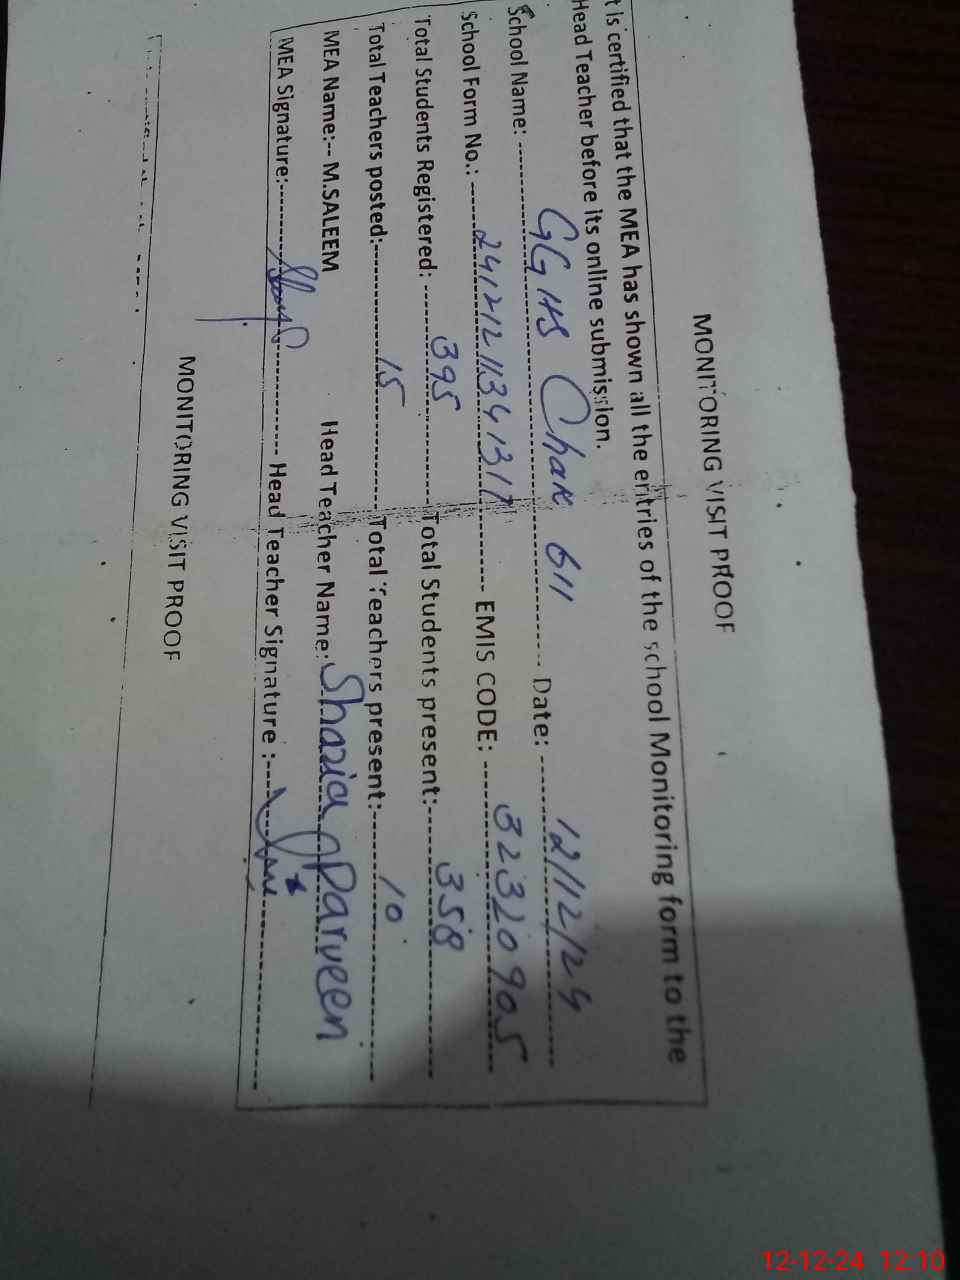 MONITORING VISIT PROOF
t is certified that the MEA has shown all the entries of the school Monitoring form to the
Head Teacher before its online submission.
School Name: GGHS Chak 611 Date: 12/12/24
School Form No.: 24121211341317 EMIS CODE: 32320905
Total Students Registered: 395 Total Students present: 358
Total Teachers posted: 15 Total Teachers present: 10
MEA Name:-- M.SALEEM Head Teacher Name: Shazia Parveen
MEA Signature: Head Teacher Signature :
MONITORING VISIT PROOF
12-12-24 12:10